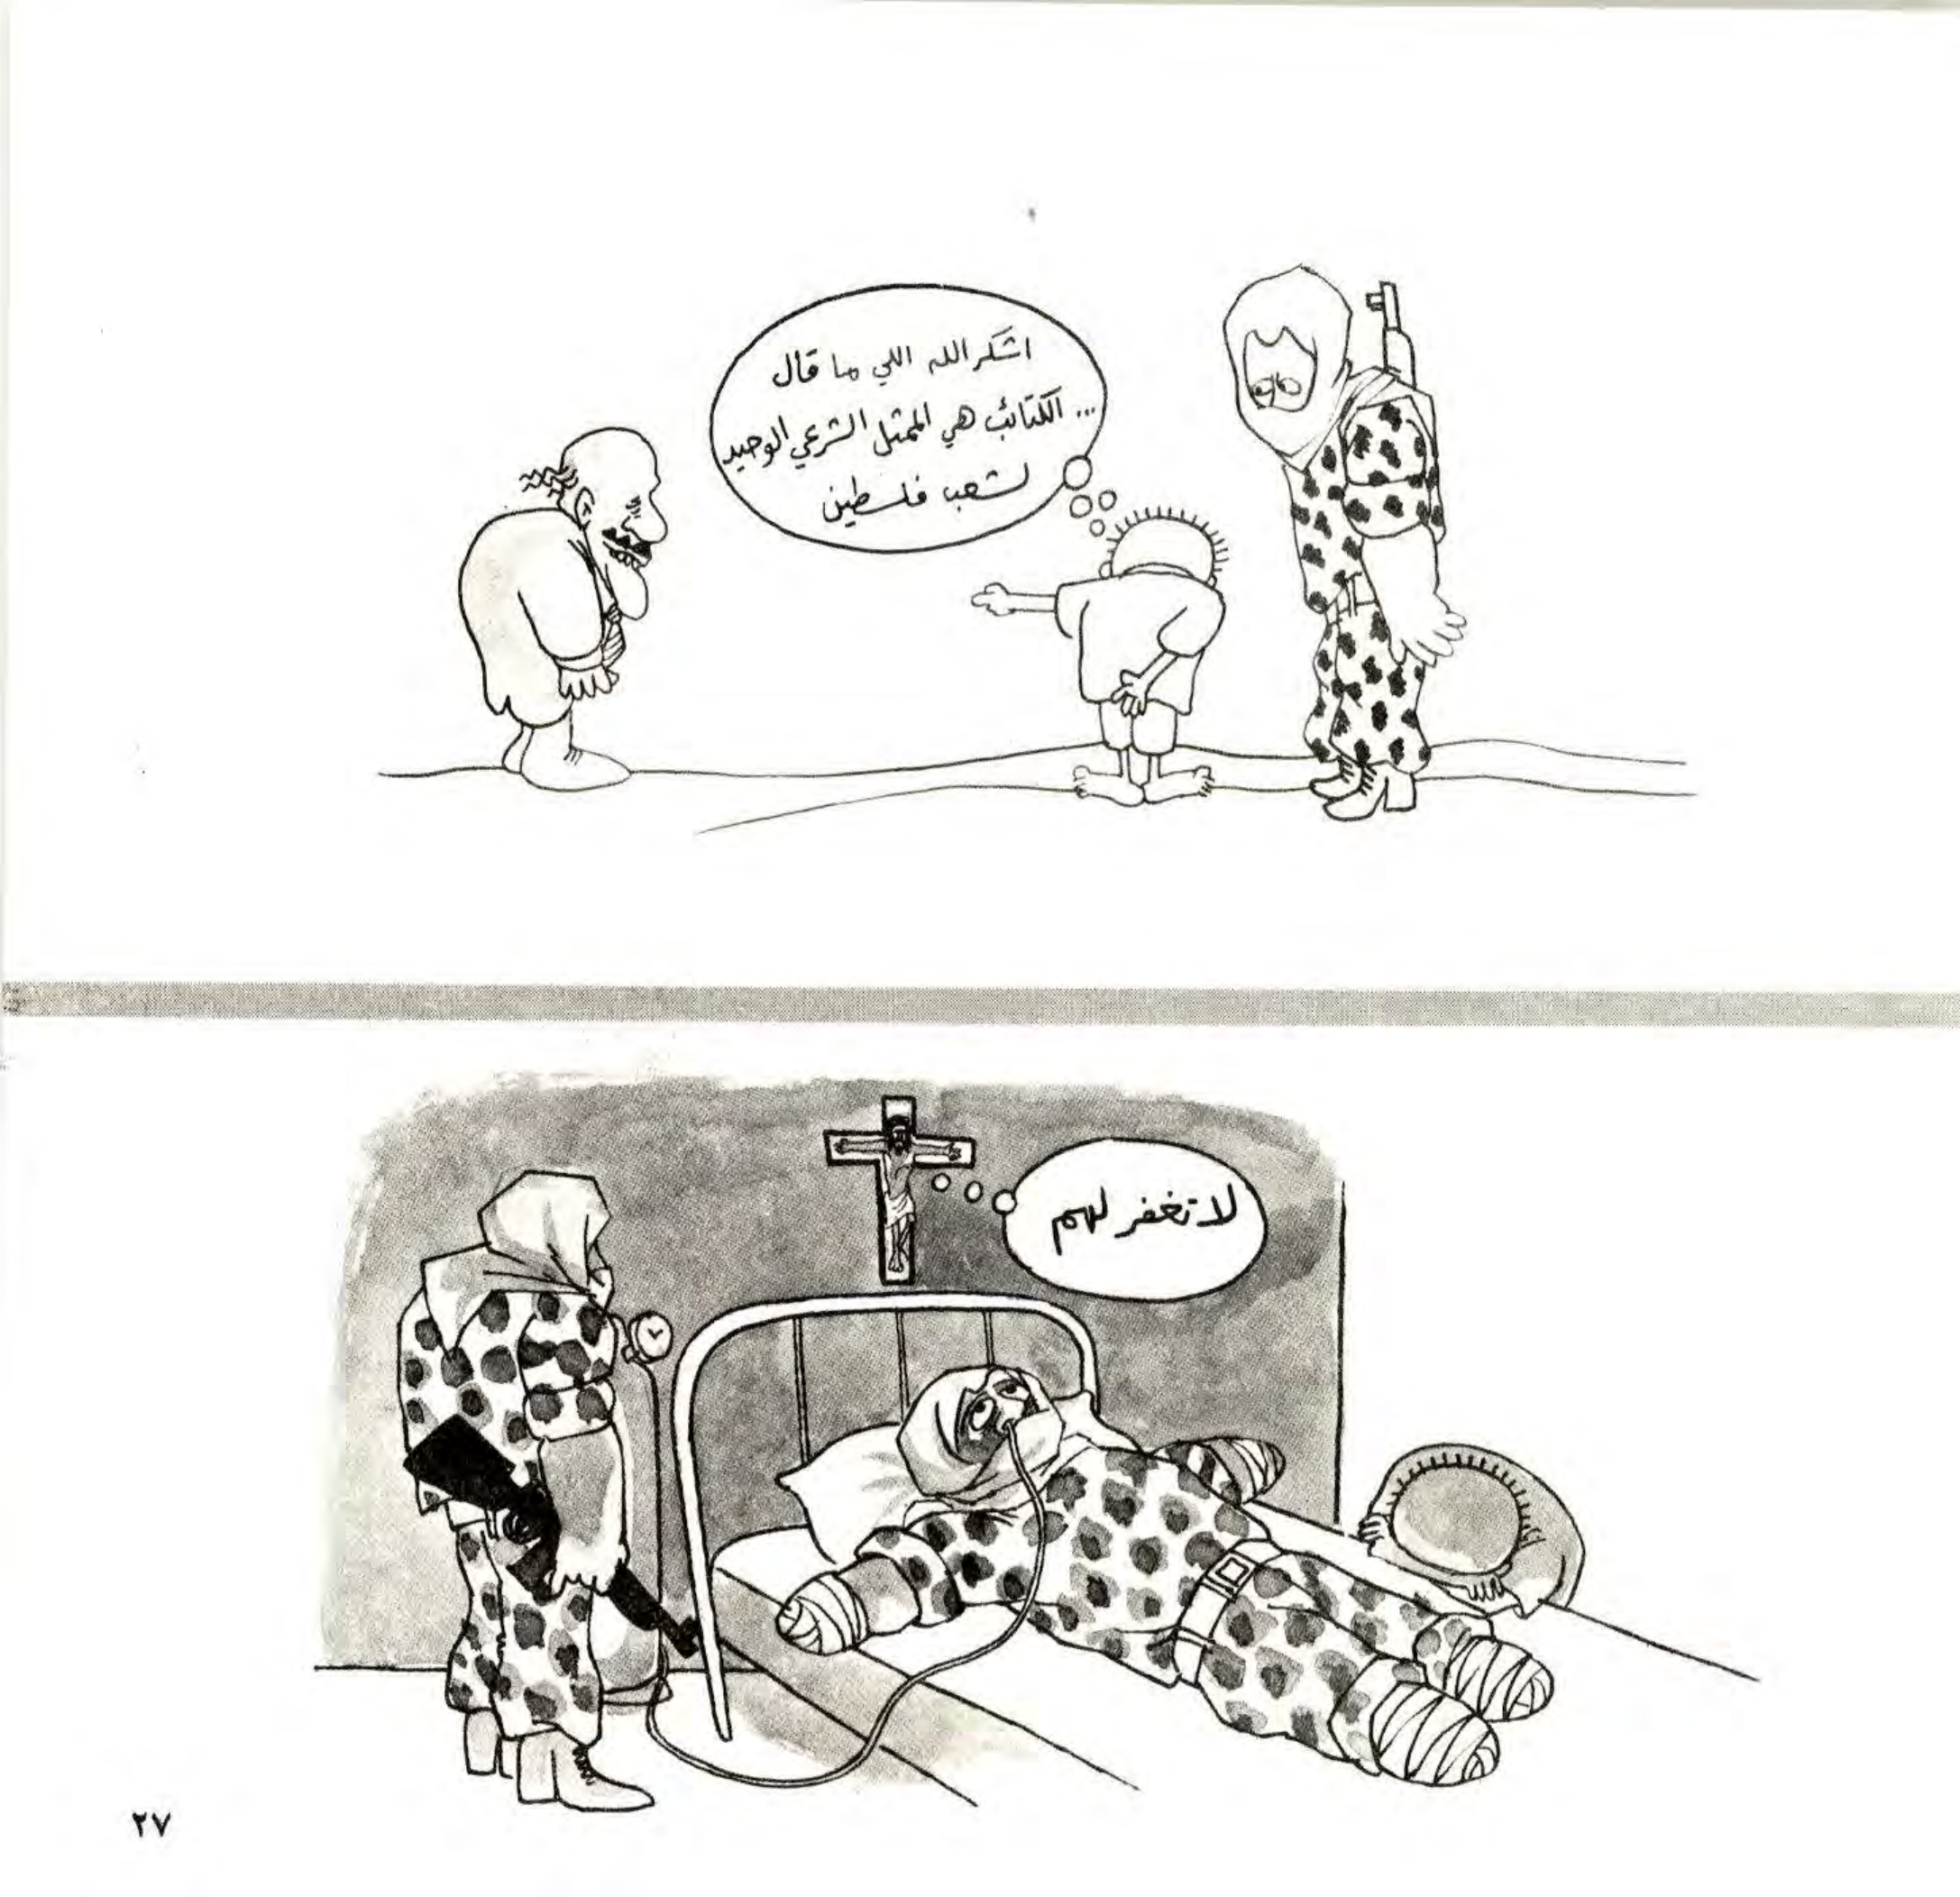 اشكر الله اللي ما قال
... الكتائب هي الممثل الشرعي الوحيد
لشعب فلسطين
لا تغفر لهم
٢٧